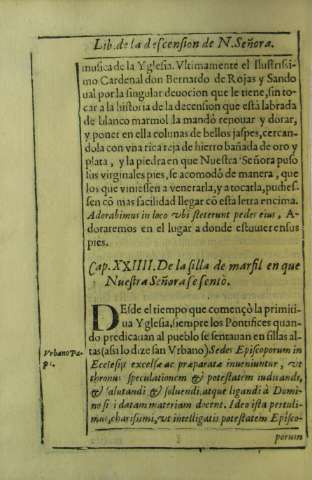 Lib. de la descension de N. Señora.
musica de la Yglesia. Vltimamente el Ilustrissi
mo Cardenal don Bernardo de Rojas y Sando
ual por la singular deuocion que le tiene, sin to-
car a la historia de la decension que està labrada
de blanco marmol la mandò renouar y dorar,
y poner en ella colunas de bellos jaspes, cercan-
dola con vna rica reja de hierro bañada de oro y
plata, y la piedra en que Nuestra Señora puso
sus virginales pies, se acomodò de manera, que
los que viniessen a venerarla, y a tocarla, pudies-
sen cõ mas facilidad llegar cõ esta letra encima.
Adorabimus in loco vbi steterunt pedes eius, A-
doraremos en el lugar a donde estuuierensus
pies.
Cap. XXIIII. De la silla de marfil en que
Nuestra Señora se sentò.
DEsde el tiempo que començò la primiti-
ua Yglesia, siempre los Pontifices quan-
do predicauan al pueblo se sentauan en sillas al-
Vrbano Pa-
pa.
tas (assi lo dize san Vrbano) Sedes Episcoporum in
Ecclesijs excelsæ ac præparatæ inueniuntur, vt
thronus speculationem & potestatem iudicandi,
& saluandi, & soluendi, atque ligandi à Domi-
no si i datam materiam docent. Ideo ista pertuli-
mus, charissimi, vt intelligatis potestatem Episco-
porum